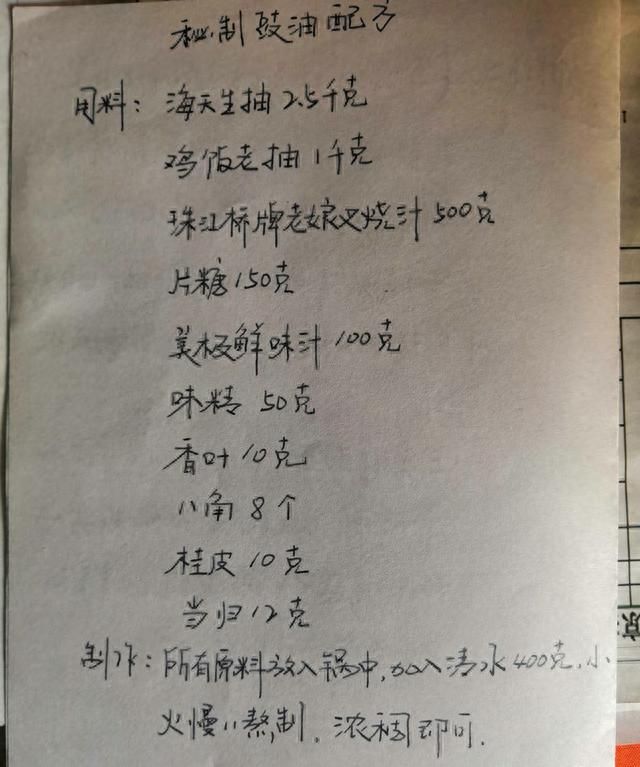 秘制豉油配方
用料：海天生抽2.5千克
鸡饭老抽1千克
珠江桥牌老娘叉烧汁500克
片糖150克
美极鲜味汁100克
味精50克
香叶10克
八角8个
桂皮10克
当归12克
制作：所有原料放入锅中,加入清水400克,小
火慢慢熬制。浓稠即可.
京